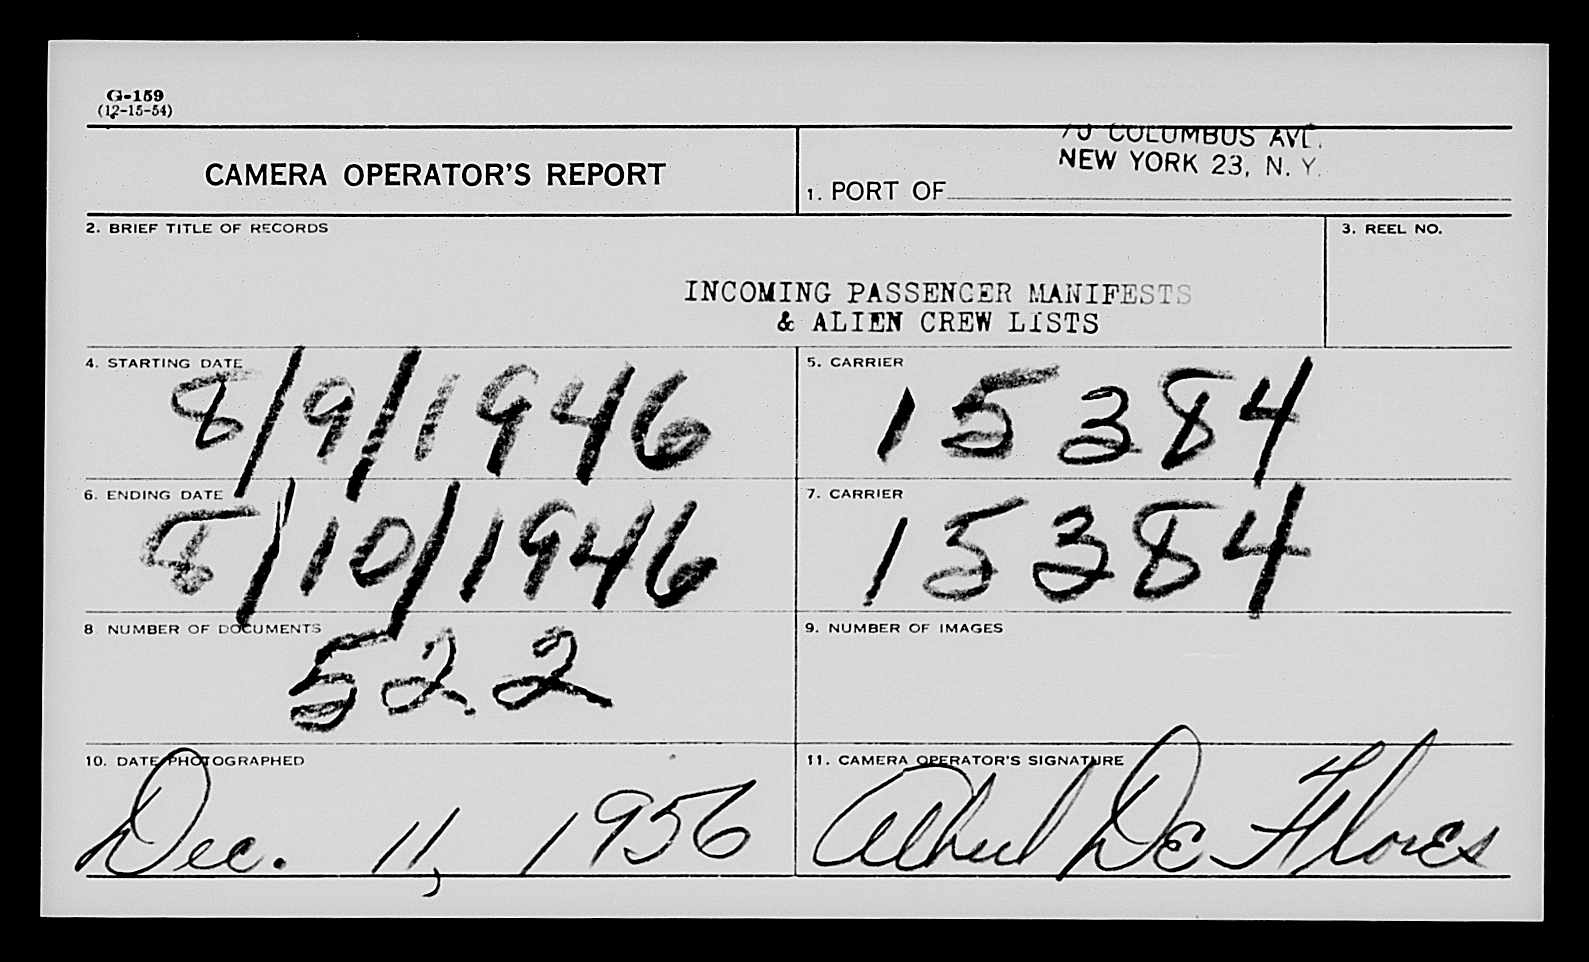 G-159
(12-15-54)
CAMERA OPERATOR'S REPORT
70 COLUMBUS AVE.
NEW YORK 23, N. Y.
1. PORT OF
2. BRIEF TITLE OF RECORDS
3. REEL NO.
INCOMING PASSENGER MANIFESTS
& ALIEN CREW LISTS
4. STARTING DATE
8/9/1946
5. CARRIER
15384
6. ENDING DATE
8/10/1946
7. CARRIER
15384
8 NUMBER OF DOCUMENTS
522
9. NUMBER OF IMAGES
10. DATE PHOTOGRAPHED
Dec. 11, 1956
11. CAMERA OPERATOR'S SIGNATURE
De Flores